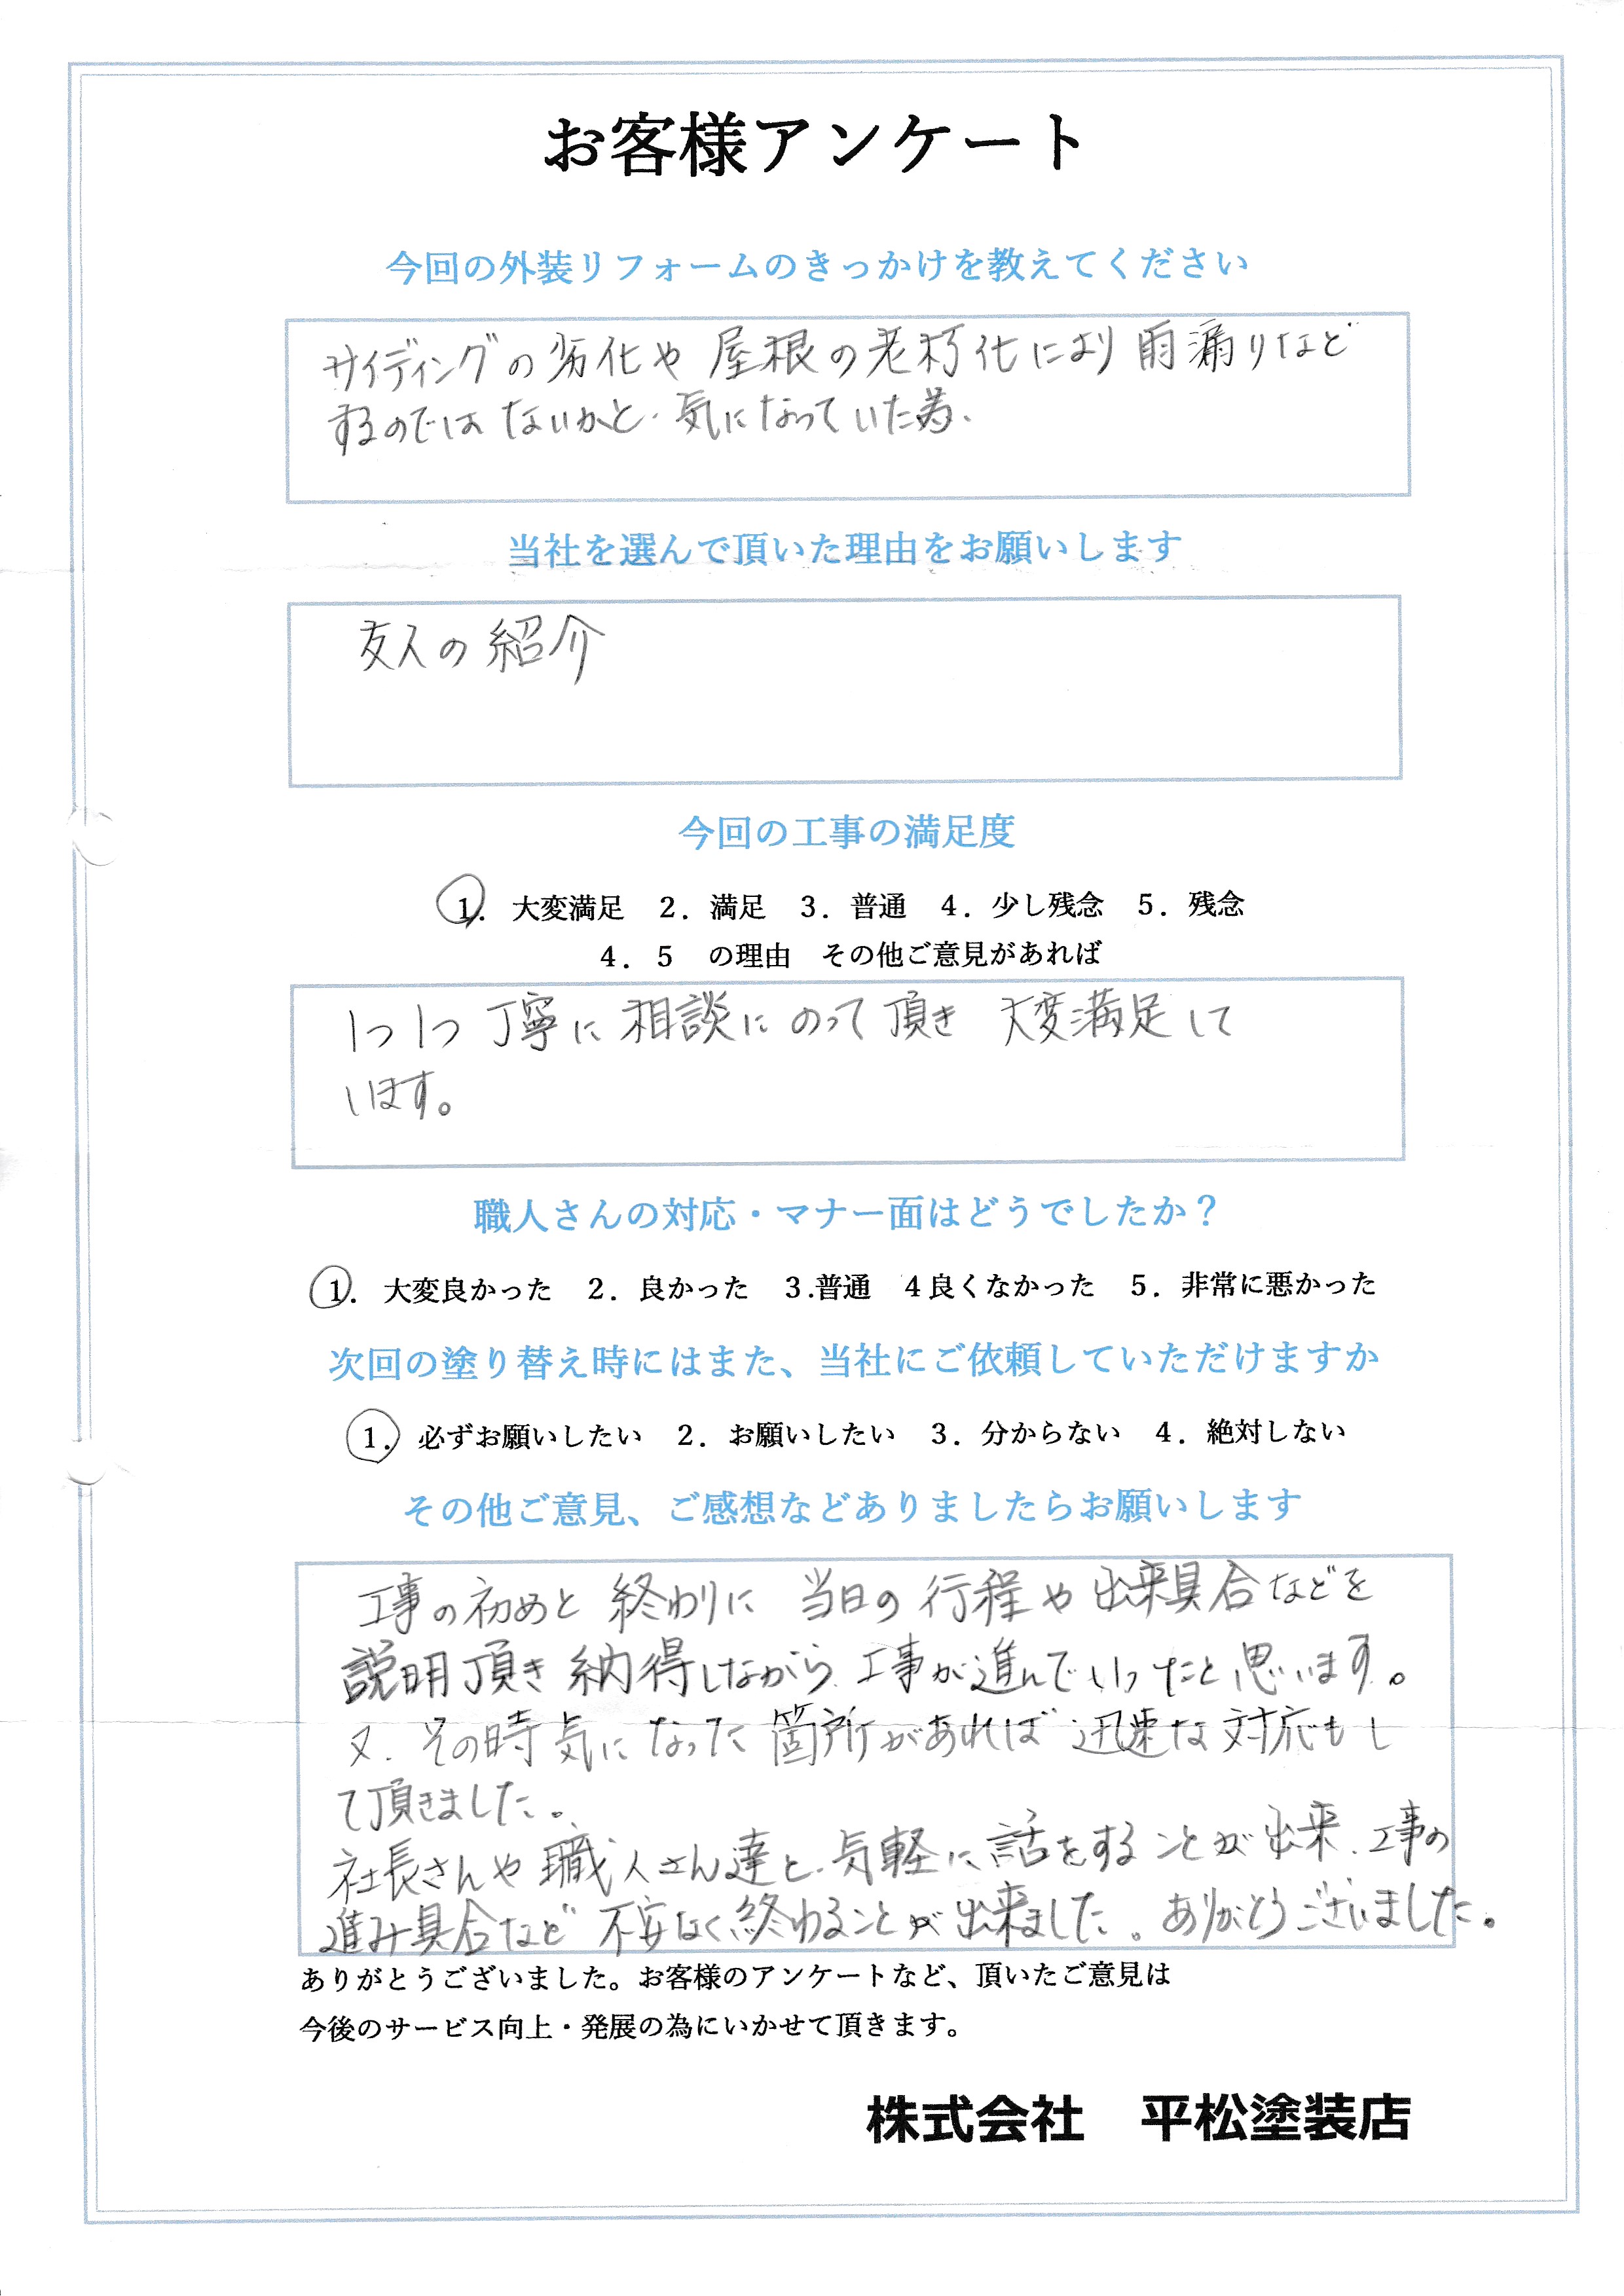 お客様アンケート
今回の外装リフォームのきっかけを教えてください
サイディングの劣化や屋根の老朽化により雨漏りなど
するのではないかと、気になっていた為、
当社を選んで頂いた理由をお願いします
友人の紹介
今回の工事の満足度
1. 大変満足 2. 満足 3. 普通 4. 少し残念 5. 残念
4. 5 の理由 その他ご意見があれば
1つ1つ丁寧に相談にのって頂き 大変満足して
います。
職人さんの対応・マナー面はどうでしたか？
1. 大変良かった 2. 良かった 3.普通 4良くなかった 5. 非常に悪かった
次回の塗り替え時にはまた、当社にご依頼していただけますか
1. 必ずお願いしたい 2. お願いしたい 3. 分からない 4. 絶対しない
その他ご意見、ご感想などありましたらお願いします
工事の初めと終わりに 当日の行程や出来具合などを
説明頂き納得しながら、工事が進んでいったと思います。
又、その時気になった箇所があれば迅速な対応もし
て頂きました。
社長さんや職人さん達と、気軽に話をすることが出来、工事の
進み具合など不安なく終わることが出来ました。ありがとうございました。
ありがとうございました。お客様のアンケートなど、頂いたご意見は
今後のサービス向上・発展の為にいかせて頂きます。
株式会社 平松塗装店